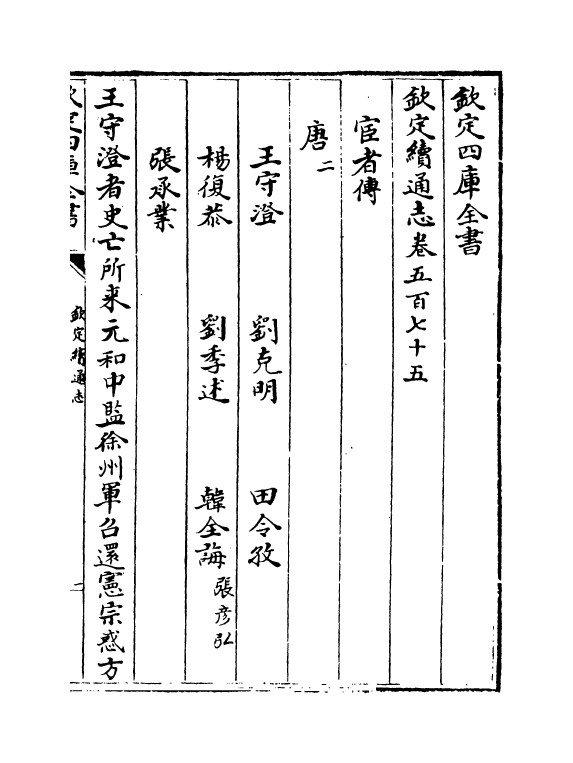 欽定四庫全書
欽定續通志卷五百七十五
宦者傳
唐二
王守澄 劉克明 田令孜
楊復恭 劉季述 韓全誨張彦弘
張承業
王守澄者史亡所來元和中監徐州軍召還憲宗惑方
欽定四庫全書 欽定續通志